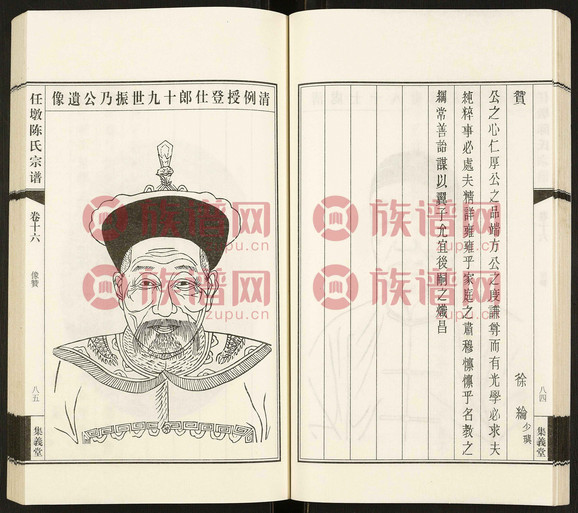 賀
公之心仁厚公之品端方公之度謙尊而有光學必求夫
純粹事必處夫精詳雍雍乎家庭之肅穆懍懍乎名教之
綱常善詒謀以翼子允宜後嗣之熾昌
徐 綸 少瑱
八四
集義堂
清例授登仕郎十九世振乃公遺像
任墩陈氏宗谱
卷十六
像贊
八五
集義堂
族谱网
zupu.cn
族谱网
zupu.cn
族谱网
zupu.cn
族谱网
zupu.cn